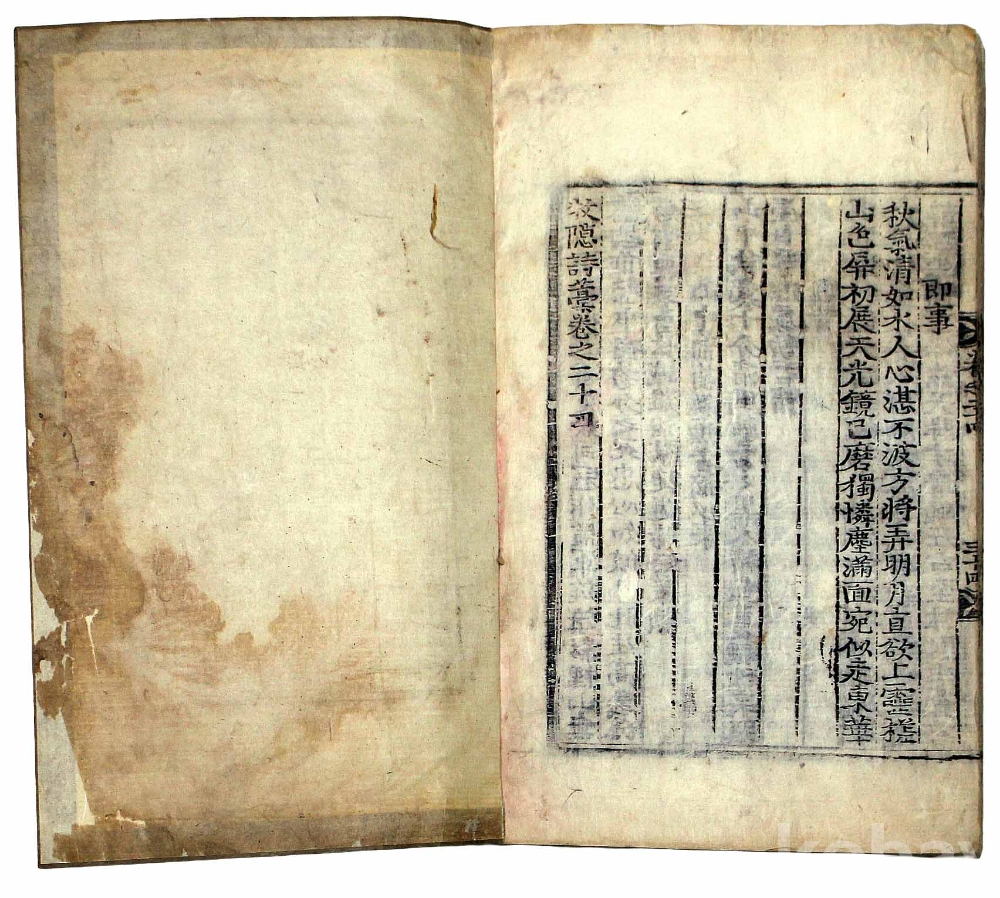 卷之二十四 三十四
即事
秋氣清如水人心湛不波方將弄明月直欲上靈槎
山色屏初展天光鏡已磨獨憐塵滿面宛似走東華
牧隱詩藁卷之二十四
kobay